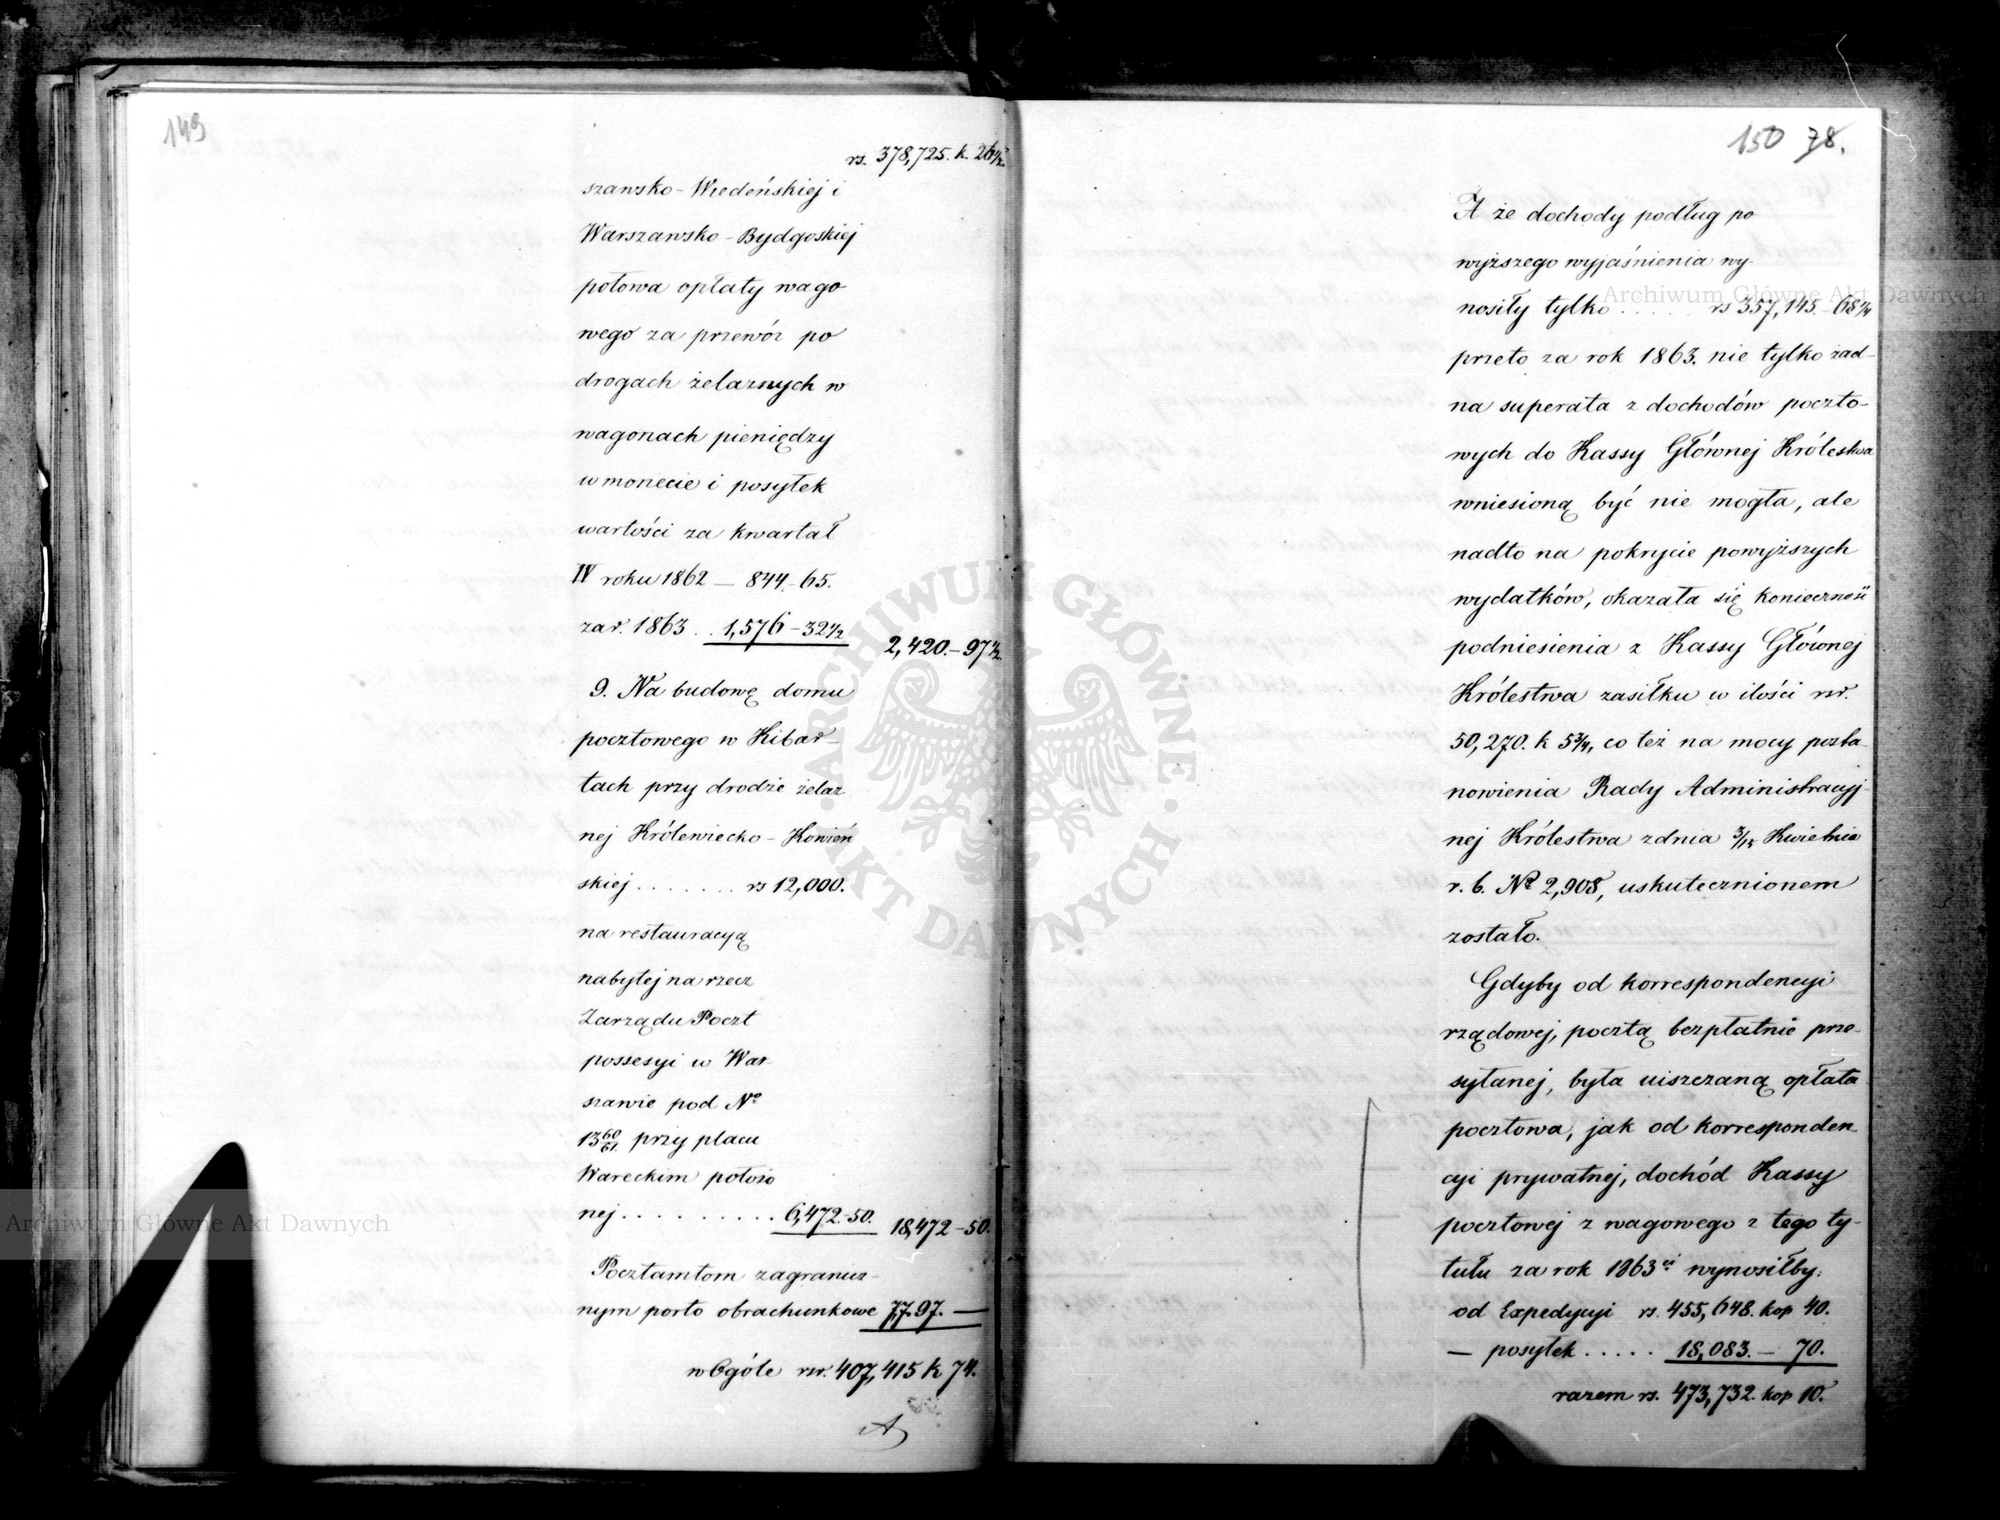 149
rs. 378,725. k. 26 1/2.
szawsko-Wiedeńskiej i
Warszawsko-Bydgoskiej
połowa opłaty wago
wego za przewóz po
drogach żelaznych w
wagonach pieniędzy
w monecie i posyłek
wartości za kwartał
IV roku 1862 — 844-65.
za r. 1863 . . 1,576-32 1/2
2,420.-97 1/2
9. Na budowę domu
pocztowego w Kibar-
tach przy drodze żelaz
nej Królewiecko-Kowień
skiej . . . . . . . rs 12,000.
na restauracyą
nabytej na rzecz
Zarządu Poczt
possesyi w War
szawie pod No
13 60/61. przy placu
Wareckim położo
nej . . . . . . . . . 6,472.-50.
18,472-50.
Pocztamtom zagranicz-
nym porto obrachunkowe 7,797. —
w Ogóle rsr. 407,415 k 74.
150 78.
A że dochody podług po
wyższego wyjaśnienia wy-
nosiły tylko . . . . . rs 357,145.-68 1/4
przeto za rok 1863. nie tylko żad-
na superata z dochodów poczto-
wych do Kassy Głównej Królestwa
wniesioną być nie mogła, ale
nadto na pokrycie powyższych
wydatków, okazała się konieczność
podniesienia z Kassy Głównej
Królestwa zasiłku w ilości rsr.
50,270. k 5 3/4, co też na mocy posta-
nowienia Rady Administracyj-
nej Królestwa z dnia 3/15 Kwietnia
r. b. No 2,908, uskutecznionem
zostało.
Gdyby od korrespondencyi
rządowej, pocztą bezpłatnie prze-
syłanej, była uiszczaną opłata
pocztowa, jak od korresponden
cyi prywatnej, dochód Kassy
pocztowej z wagowego z tego ty-
tułu za rok 1863 ci wynosiłby:
od Expedycyi rs. 455,648. kop 40.
— posyłek . . . . . 18,083.- 70.
razem rs. 473,732. kop 10.
Archiwum Główne Akt Dawnych
Archiwum Główne Akt Dawnych
ARCHIWUM GŁÓWNE · AKT DAWNYCH ·